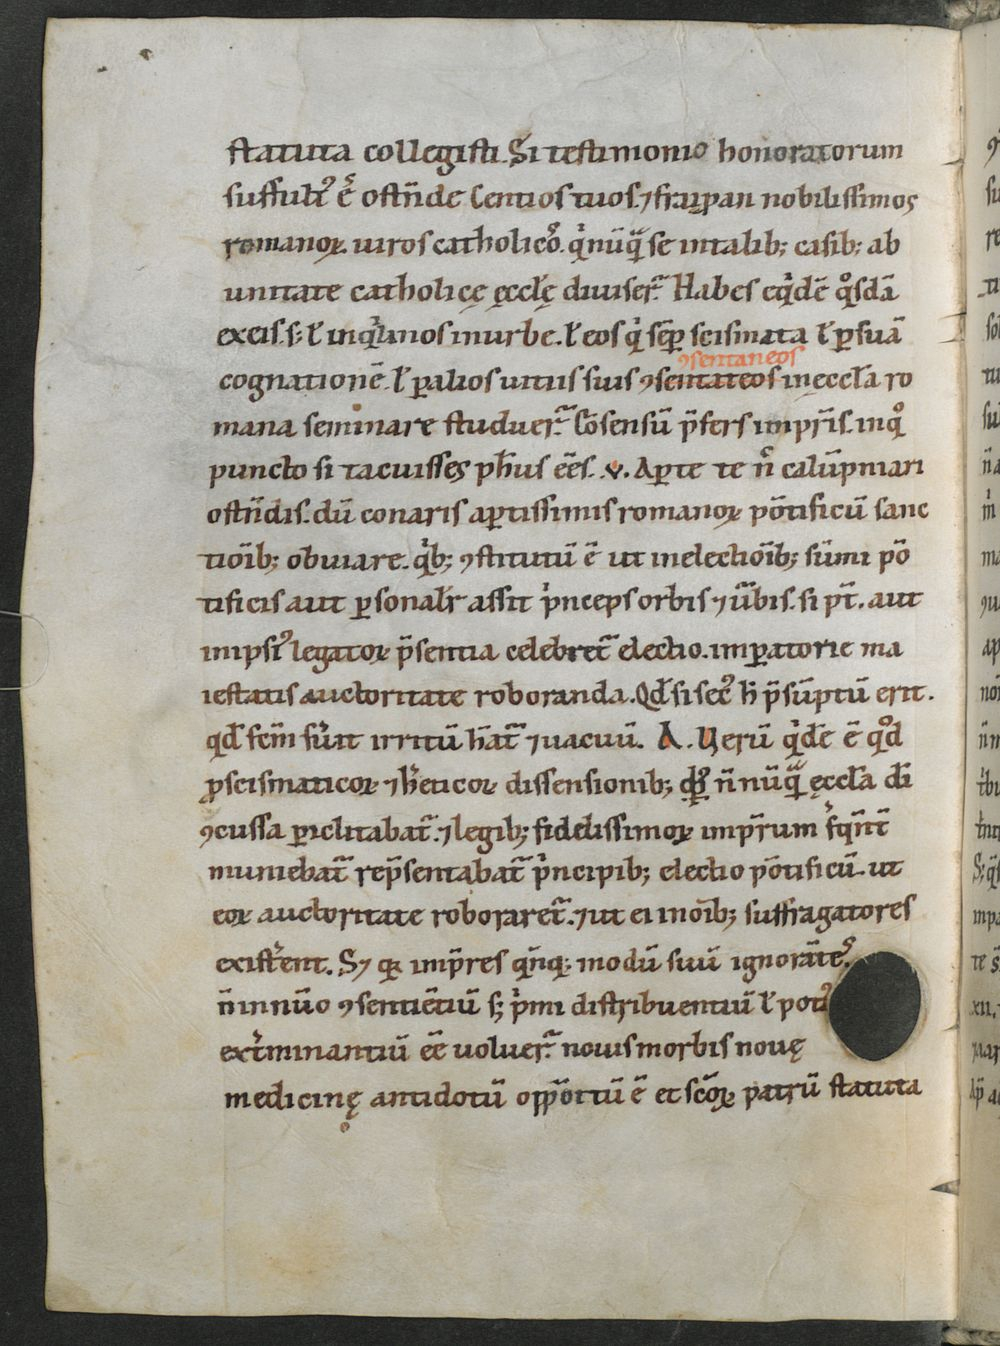 statuta collegisti. Si testimonio honoratorum
suffult᾽ ē ostn̄de Centios tuos. ⁊ fraıp̱an nobilissimos
romanoꝝ. uiros catholicō. qͥ nūq̄ se intalib; casib; ab
unitate catholicę ęcclę̄ diuiser̄. Habes eqͥdē qͦsdā
exeis. s; ł inqͥlinos inurbe. ł eos qͥ sēꝑ scismata ł ꝑ suā
cognationē. ł ꝑ alios uitiis suis ꝯsentateos inęccła ro
ꝯsentaneos
mana seminare studuer̄. Cōsensū p̄fers imprı̄s. inqͦ
puncto si tacuisses ph̄us eēs. .v. Aꝑte te n̄ calūpniari
ostn̄dis. dū conaris aꝑtissimis romanoꝝ pōtificū sanc
tiōib; obuiare. qͥb; ꝯstitutū ē ut inelectiōib; sūmi pō
tificis aut ꝑsonalr̄ assit pͥnceps orbis ⁊ ūbis. si pt̄. aut
inipsı᾽ legatoꝝ p̄sentia celebret̄ electio. imꝑatorie ma
iestatis auctoritate roboranda. Qd̄ si sec᾽ h̄ p̄sūptū erit.
qd̄ fcm̄ fu̓it irritū h̄at̄ ⁊ uacuū. A. Uerū qͥdē ē qͦd
ꝓ scismaticoꝝ ⁊ h̓eticoꝝ dissensionib; n̄nūq̄ ęccła dı̄
ꝯcussa ꝑiclitabat̄. ⁊ legib; fidelissimoꝝ impr̄rum
muniebat̄ rep̄sentabat̄ pͥncipib; electio pōtificū. ut
eoꝝ auctoritate roboraret̄. ⁊ ut ei inoı̄b; suffragatores
existe̓nt. S; ⁊ imp̄res modū suū ignorāte᾽
n̄ innūo ꝯsentiētiū s; pͥmi distribuentiū ł poti᾽
exte̓minantiū eē uoluer̄. nouis morbis nouę
medicinę antidotū oppōrtū ē et sc̄oꝝ patrū statuta